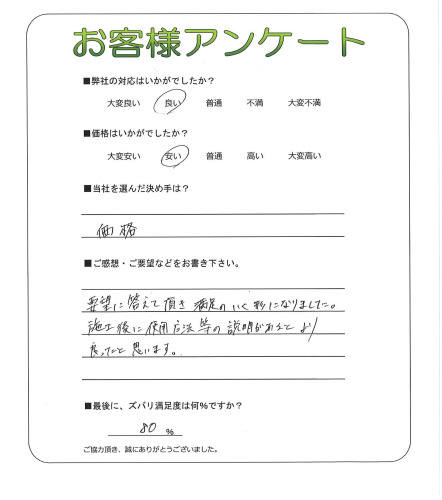 お客様アンケート
■弊社の対応はいかがでしたか？
大変良い 良い 普通 不満 大変不満
■価格はいかがでしたか？
大変安い 安い 普通 高い 大変高い
■当社を選んだ決め手は？
価格
■ご感想・ご要望などをお書き下さい。
要望に答えて頂き満足のいく形になりました。
施工後に使用方法等の説明があるとより
良ったと思います。
■最後に、ズバリ満足度は何％ですか？
80 %
ご協力頂き、誠にありがとうございました。